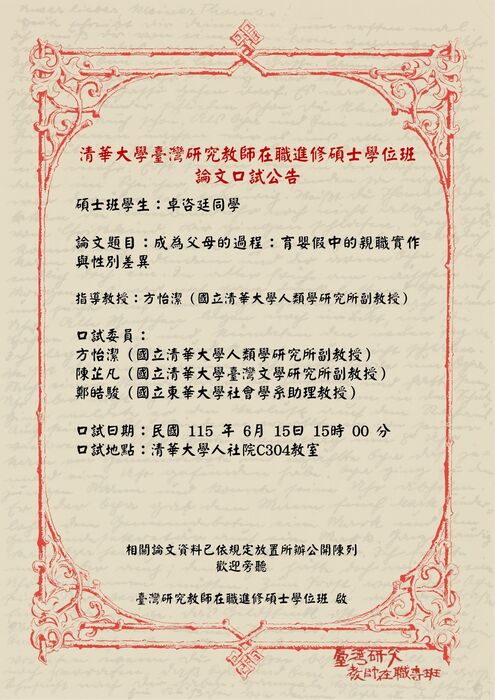 清華大學臺灣研究教師在職進修碩士學位班
論文口試公告
碩士班學生：卓咨廷同學
論文題目：成為父母的過程：育嬰假中的親職實作
與性別差異
指導教授：方怡潔（國立清華大學人類學研究所副教授）
口試委員：
方怡潔（國立清華大學人類學研究所副教授）
陳芷凡（國立清華大學臺灣文學研究所副教授）
鄭皓駿（國立東華大學社會學系助理教授）
口試日期：民國 115 年 6月 15日 15時 00 分
口試地點：清華大學人社院C304教室
相關論文資料已依規定放置所辦公開陳列
歡迎旁聽
臺灣研究教師在職進修碩士學位班 啟
臺灣研究
教師在職專班